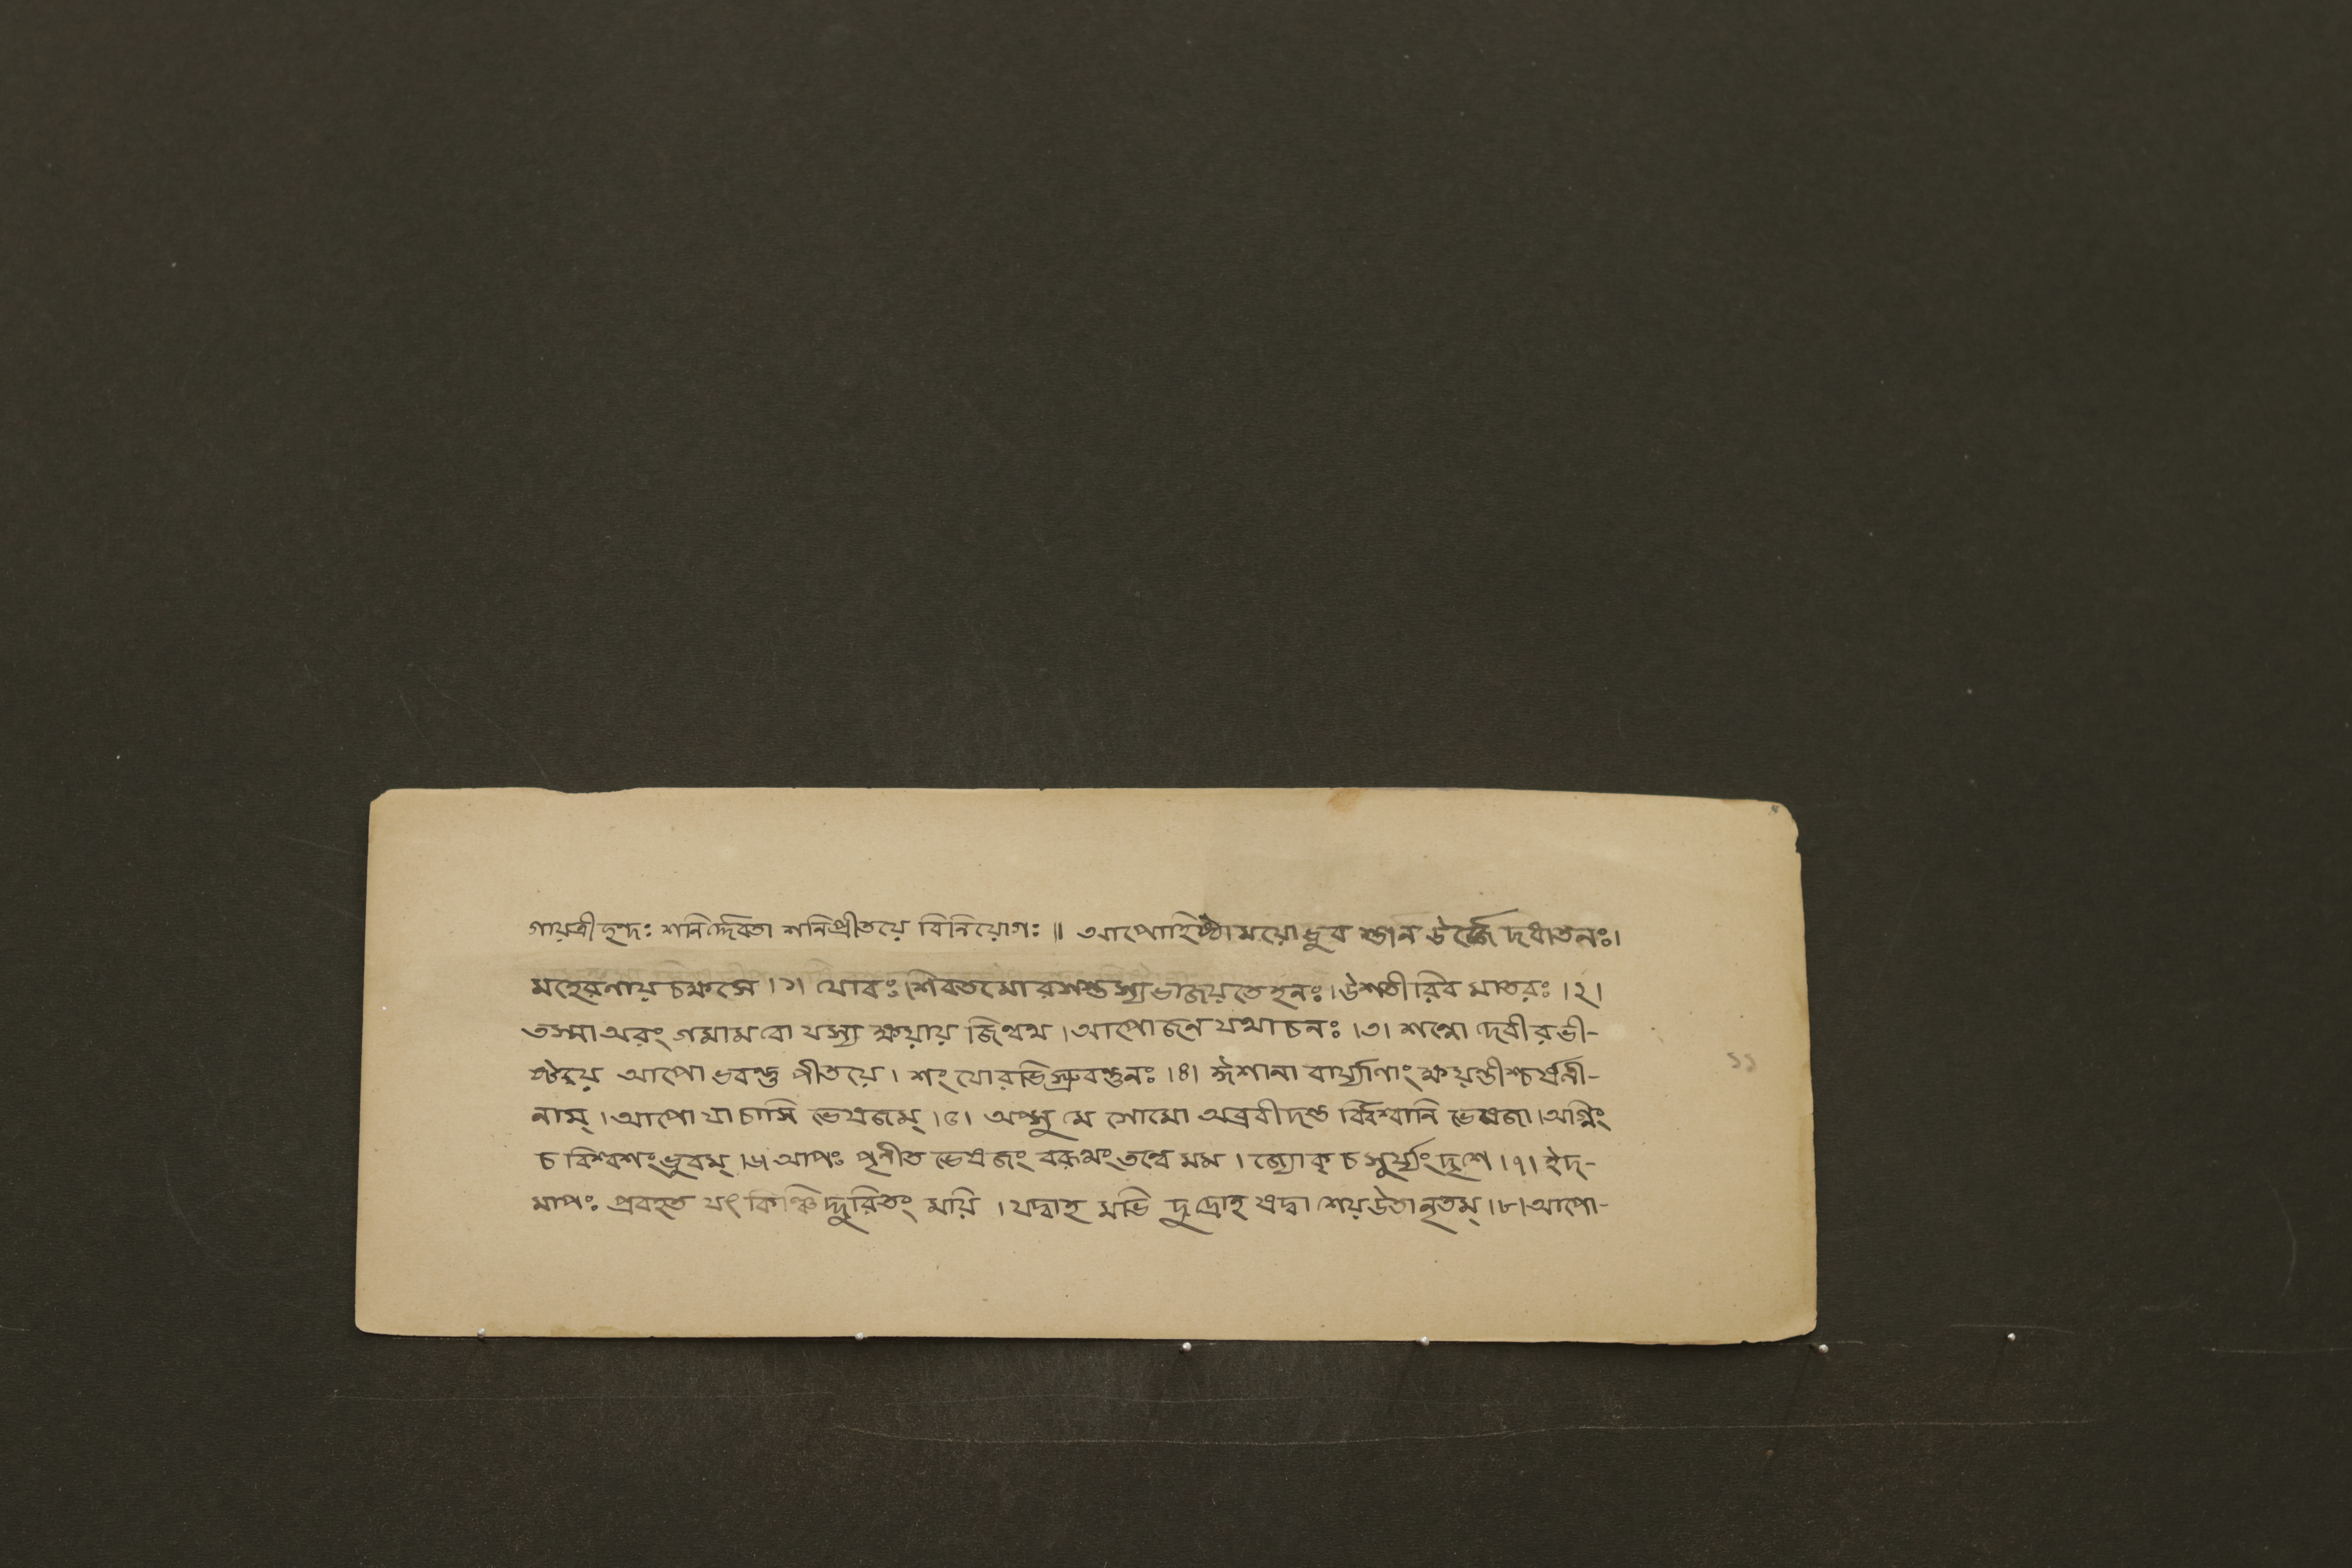 গায়ত্রীছন্দঃ শনির্দ্দেবতা শনিপ্রীতয়ে বিনিয়োগঃ ॥ আপোহিষ্ঠাময়োভুব স্তান ঊর্জ্জে দধাতনঃ।
মহেরণায় চক্ষসে ।১। যোবঃ।শিবতমো রসস্তস্য ভাজয়তে হনঃ। উশতী রিব মাতরঃ ।২।
তস্মা অরং গমাম বো যস্য ক্ষয়ায় জিন্বথ । আপো জন যথা চনঃ ।৩। শন্নো দেবীরভী-
ষ্টয়ে আপো ভবন্তু পীতয়ে। শং যোরভিস্রুবন্তুনঃ ।৪। ঈশানা বার্য্যাণাং ক্ষয়ন্তীশ্চর্ষণী-
নাম্ । আপো যাচামি ভেষজম্ ।৫। অপ্সু মে সোমো অব্রবীদন্ত র্ব্বিশ্বানি ভেষজা।অগ্নিং
চ বিশ্বশং ভুবম্ ।৬। আপঃ পৃণীত ভেষজং বরূথং তন্বে মম । জ্যোক্ চ সূর্য্যং দৃশে ।৭। ইদ-
মাপঃ প্রবহত যৎ কিঞ্চি দ্দুরিতং ময়ি । যদ্বাহ মভি দুদ্রোহ যদ্বা শেয় উতানৃতম্ ।৮। আপো-
১১